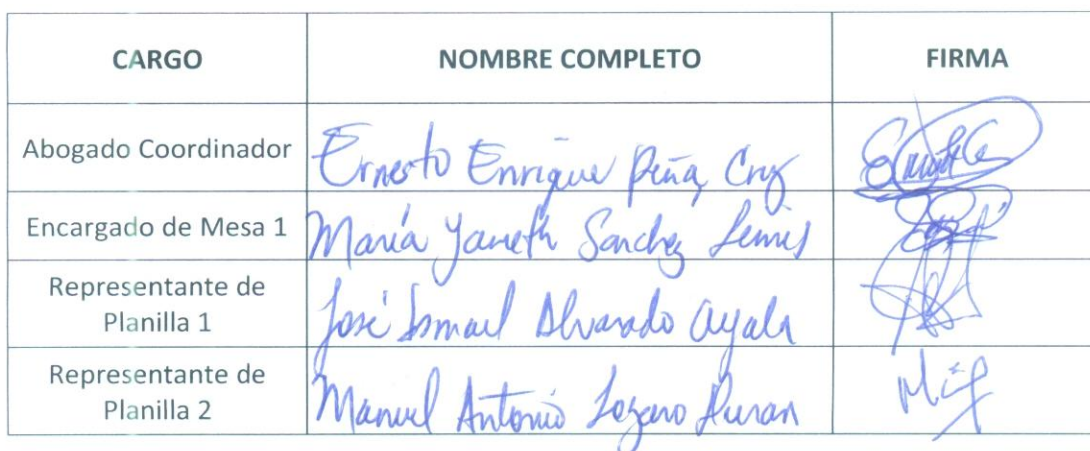 CARGO NOMBRE COMPLETO FIRMA
Abogado Coordinador Ernesto Enrique Peña Cruz
Encargado de Mesa 1 María Yaneth Sanchez
Representante de
Planilla 1 José Ismael Alvarado Ayala
Representante de
Planilla 2 Manuel Antonio Lozano Duran